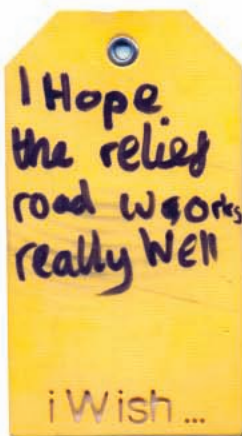 I Hope
the relief
road works
really Well
i Wish ...